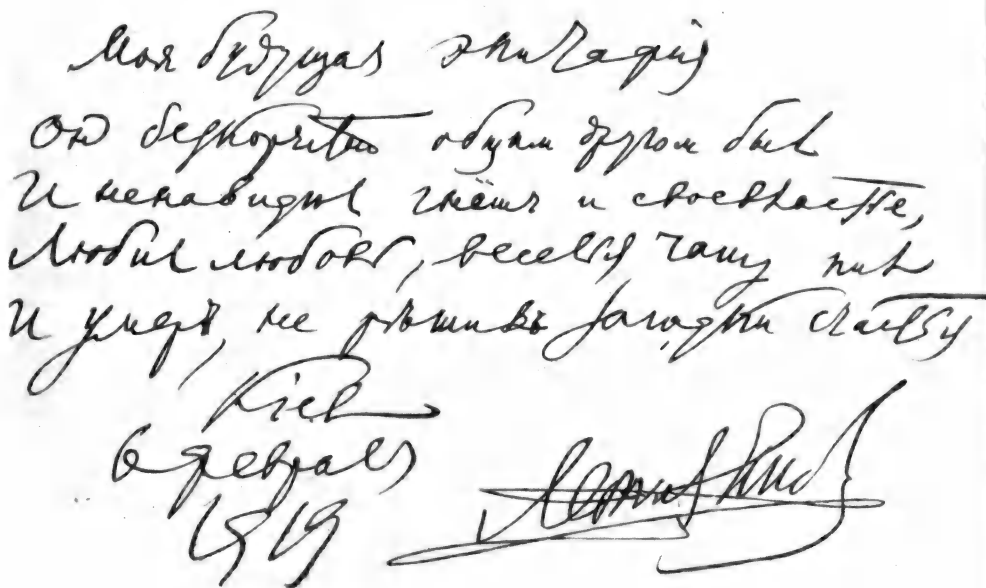 Моя будущая эпитафія
Он безкорыстно общим другом был
И ненавидел гнёт и своевластье,
Любил любовь, веселья чашу пил
И умеръ, не рѣшивъ загадки счастья
Кіев
6 февраля
1919